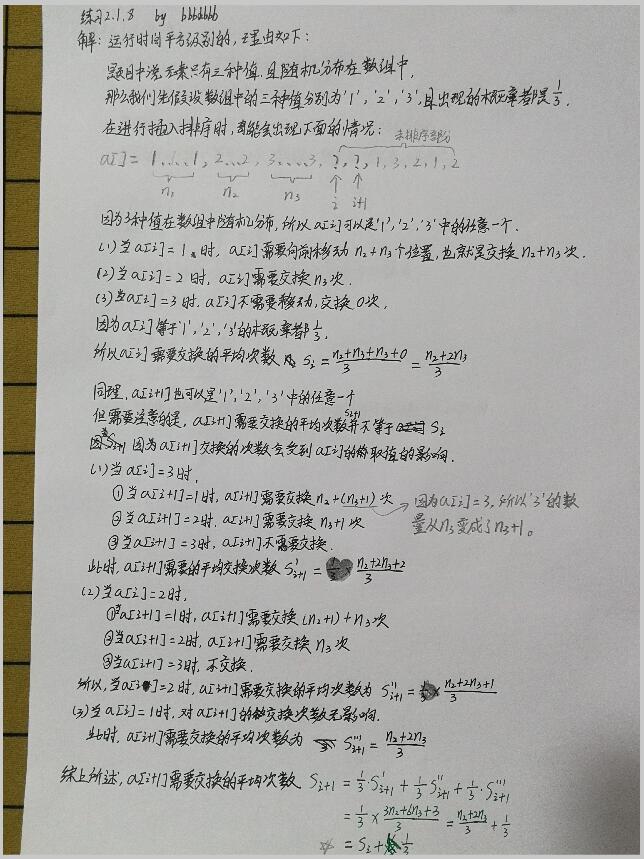 练习2.1.8 by bbbbbbb
解：运行时间平方级别的，理由如下：
题目中说元素只有三种值，且随机分布在数组中，
那么我们先假设数组中的三种值分别为'1'，'2'，'3'，且出现的概率都是1/3．
在进行插入排序时，可能会出现下面的情况：
未排序部分
a[]= 1...1, 2...2, 3...3, ?, ?, 1, 3, 2, 1, 2
n₁ n₂ n₃ i i+1
因为3种值在数组中随机分布，所以a[i]可以是'1'，'2'，'3'中的任意一个．
(1)当a[i]=1时，a[i]需要向前移动n₂+n₃个位置，也就是交换n₂+n₃次．
(2)当a[i]=2时，a[i]需要交换n₃次．
(3)当a[i]=3时，a[i]不需要移动，交换0次，
因为a[i]等于'1'，'2'，'3'的概率都1/3，
所以a[i]需要交换的平均次数 Sᵢ = (n₂+n₃+n₃+0)/3 = (n₂+2n₃)/3
同理，a[i+1]也可以是'1'，'2'，'3'中的任意一个
但需要注意的是，a[i+1]需要交换的平均次数Sᵢ₊₁并不等于Sᵢ
因为a[i+1]交换的次数会受到a[i]的取值的影响．
(1)当a[i]=3时，
①当a[i+1]=1时，a[i+1]需要交换n₂+(n₃+1)次 → 因为a[i]=3，所以'3'的数
②当a[i+1]=2时，a[i+1]需要交换n₃+1次 量从n₃变成了n₃+1。
③当a[i+1]=3时，a[i+1]不需要交换．
此时，a[i+1]需要的平均交换次数 S'ᵢ₊₁ = (n₂+2n₃+2)/3
(2)当a[i]=2时，
①当a[i+1]=1时，a[i+1]需要交换(n₂+1)+n₃次
②当a[i+1]=2时，a[i+1]需要交换n₃次
③当a[i+1]=3时，不交换．
所以，当a[i]=2时，a[i+1]需要交换的平均次数为 S''ᵢ₊₁ = (n₂+2n₃+1)/3
(3)当a[i]=1时，对a[i+1]的交换次数无影响．
此时，a[i+1]需要交换的平均次数为 S'''ᵢ₊₁ = (n₂+2n₃)/3
综上所述，a[i+1]需要交换的平均次数 Sᵢ₊₁ = 1/3·S'ᵢ₊₁ + 1/3 S''ᵢ₊₁ + 1/3·S'''ᵢ₊₁
= 1/3 × (3n₂+6n₃+3)/3 = (n₂+2n₃)/3 + 1/3
= Sᵢ + 1/3